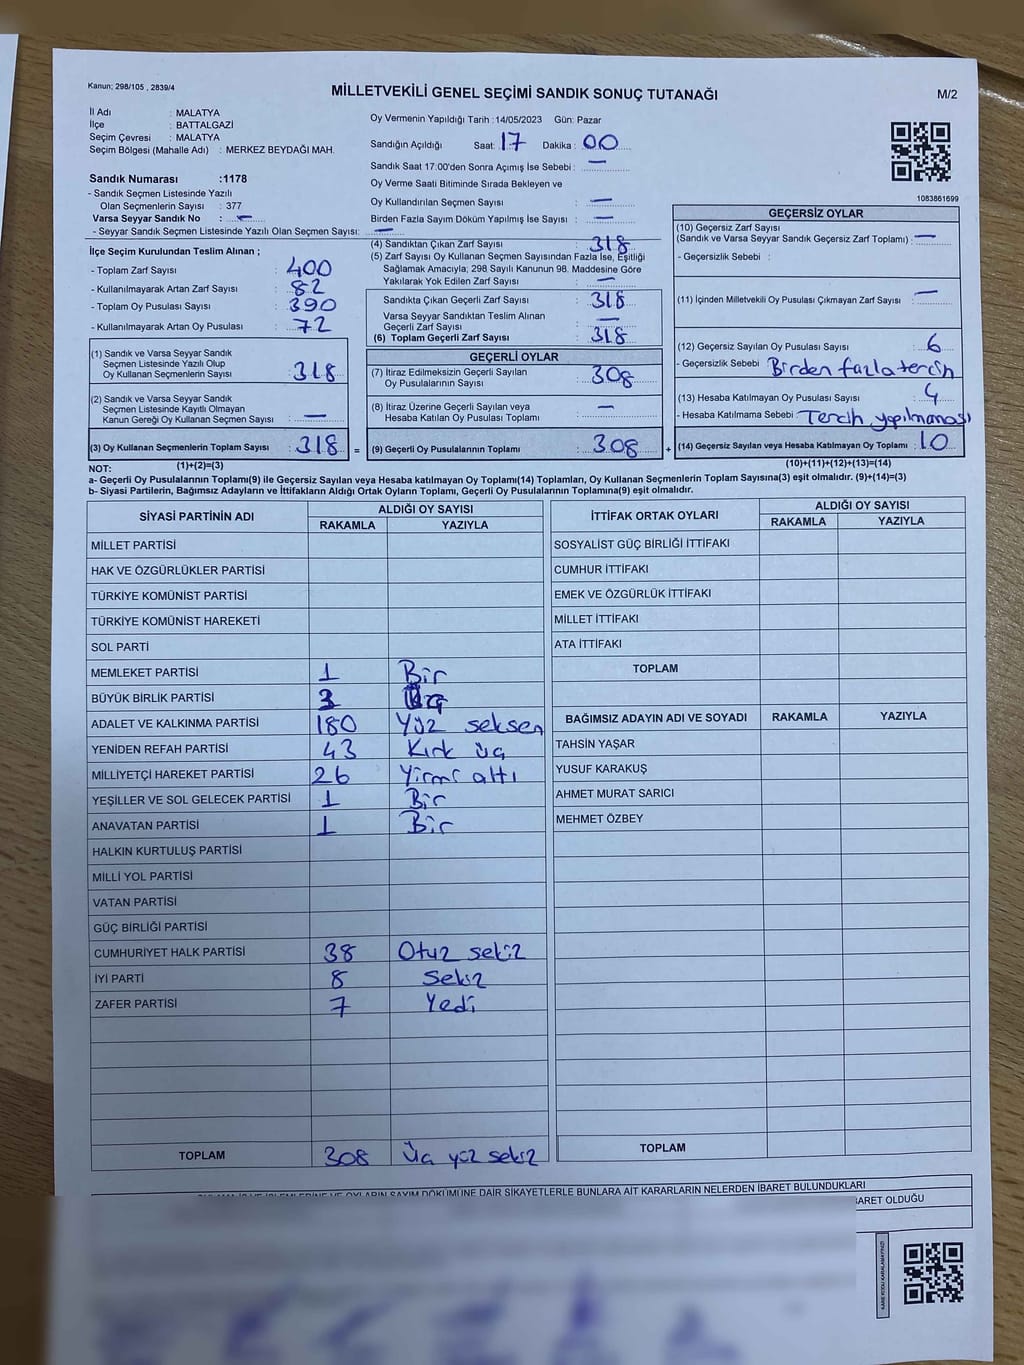 Kanun; 298/105 , 2839/4
MİLLETVEKİLİ GENEL SEÇİMİ SANDIK SONUÇ TUTANAĞI
M/2
İl Adı : MALATYA
İlçe : BATTALGAZİ
Seçim Çevresi : MALATYA
Seçim Bölgesi (Mahalle Adı) : MERKEZ BEYDAĞI MAH.
Sandık Numarası :1178
- Sandık Seçmen Listesinde Yazılı
Olan Seçmenlerin Sayısı : 377
Varsa Seyyar Sandık No : —
- Seyyar Sandık Seçmen Listesinde Yazılı Olan Seçmen Sayısı: —
Oy Vermenin Yapıldığı Tarih :14/05/2023 Gün: Pazar
Sandığın Açıldığı Saat: 17 Dakika : 00
Sandık Saat 17.00'den Sonra Açımış İse Sebebi : —
Oy Verme Saati Bitiminde Sırada Bekleyen ve
Oy Kullandırılan Seçmen Sayısı : —
Birden Fazla Sayım Döküm Yapılmış İse Sayısı : —
1083861699
İlçe Seçim Kurulundan Teslim Alınan ;
- Toplam Zarf Sayısı : 400
- Kullanılmayarak Artan Zarf Sayısı : 82
- Toplam Oy Pusulası Sayısı : 390
- Kullanılmayarak Artan Oy Pusulası : 72
(1) Sandık ve Varsa Seyyar Sandık
Seçmen Listesinde Yazılı Olup
Oy Kullanan Seçmenlerin Sayısı : 318
(2) Sandık ve Varsa Seyyar Sandık
Seçmen Listesinde Kayıtlı Olmayan
Kanun Gereği Oy Kullanan Seçmen Sayısı : —
(3) Oy Kullanan Seçmenlerin Toplam Sayısı : 318 =
(1)+(2)=(3)
(4) Sandıktan Çıkan Zarf Sayısı : 318
(5) Zarf Sayısı Oy Kullanan Seçmen Sayısından Fazla İse, Eşitliği
Sağlamak Amacıyla; 298 Sayılı Kanunun 98. Maddesine Göre
Yakılarak Yok Edilen Zarf Sayısı : —
Sandıkta Çıkan Geçerli Zarf Sayısı : 318
Varsa Seyyar Sandıktan Teslim Alınan
Geçerli Zarf Sayısı : —
(6) Toplam Geçerli Zarf Sayısı : 318
GEÇERLİ OYLAR
(7) İtiraz Edilmeksizin Geçerli Sayılan
Oy Pusulalarının Sayısı : 308
(8) İtiraz Üzerine Geçerli Sayılan veya
Hesaba Katılan Oy Pusulası Toplamı : —
(9) Geçerli Oy Pusulalarının Toplamı : 308 +
GEÇERSİZ OYLAR
(10) Geçersiz Zarf Sayısı
(Sandık ve Varsa Seyyar Sandık Geçersiz Zarf Toplamı) : —
- Geçersizlik Sebebi :
(11) İçinden Milletvekili Oy Pusulası Çıkmayan Zarf Sayısı : —
(12) Geçersiz Sayılan Oy Pusulası Sayısı : 6
- Geçersizlik Sebebi : Birden fazla tercih
(13) Hesaba Katılmayan Oy Pusulası Sayısı : 4
- Hesaba Katılmama Sebebi : Tercih yapılmaması
(14) Geçersiz Sayılan veya Hesaba Katılmayan Oy Toplamı : 10
(10)+(11)+(12)+(13)=(14)
NOT:
a- Geçerli Oy Pusulalarının Toplamı(9) ile Geçersiz Sayılan veya Hesaba katılmayan Oy Toplamı(14) Toplamları, Oy Kullanan Seçmenlerin Toplam Sayısına(3) eşit olmalıdır. (9)+(14)=(3)
b- Siyasi Partilerin, Bağımsız Adayların ve İttifakların Aldığı Ortak Oyların Toplamı, Geçerli Oy Pusulalarının Toplamına(9) eşit olmalıdır.
SİYASİ PARTİNİN ADI ALDIĞI OY SAYISI
RAKAMLA YAZIYLA
MİLLET PARTİSİ
HAK VE ÖZGÜRLÜKLER PARTİSİ
TÜRKİYE KOMÜNİST PARTİSİ
TÜRKİYE KOMÜNİST HAREKETİ
SOL PARTİ
MEMLEKET PARTİSİ 1 Bir
BÜYÜK BİRLİK PARTİSİ 3 Üç
ADALET VE KALKINMA PARTİSİ 180 Yüz seksen
YENİDEN REFAH PARTİSİ 43 Kırk üç
MİLLİYETÇİ HAREKET PARTİSİ 26 Yirmi altı
YEŞİLLER VE SOL GELECEK PARTİSİ 1 Bir
ANAVATAN PARTİSİ 1 Bir
HALKIN KURTULUŞ PARTİSİ
MİLLİ YOL PARTİSİ
VATAN PARTİSİ
GÜÇ BİRLİĞİ PARTİSİ
CUMHURİYET HALK PARTİSİ 38 Otuz sekiz
İYİ PARTİ 8 Sekiz
ZAFER PARTİSİ 7 Yedi
TOPLAM 308 Üç yüz sekiz
İTTİFAK ORTAK OYLARI ALDIĞI OY SAYISI
RAKAMLA YAZIYLA
SOSYALİST GÜÇ BİRLİĞİ İTTİFAKI
CUMHUR İTTİFAKI
EMEK VE ÖZGÜRLÜK İTTİFAKI
MİLLET İTTİFAKI
ATA İTTİFAKI
TOPLAM
BAĞIMSIZ ADAYIN ADI VE SOYADI RAKAMLA YAZIYLA
TAHSİN YAŞAR
YUSUF KARAKUŞ
AHMET MURAT SARICI
MEHMET ÖZBEY
TOPLAM
SAYIM DÖKÜMÜNE DAİR ŞİKAYETLERLE BUNLARA AİT KARARLARIN NELERDEN İBARET BULUNDUKLARI
İBARET OLDUĞU
KARE KODU KARALAMAYINIZ!